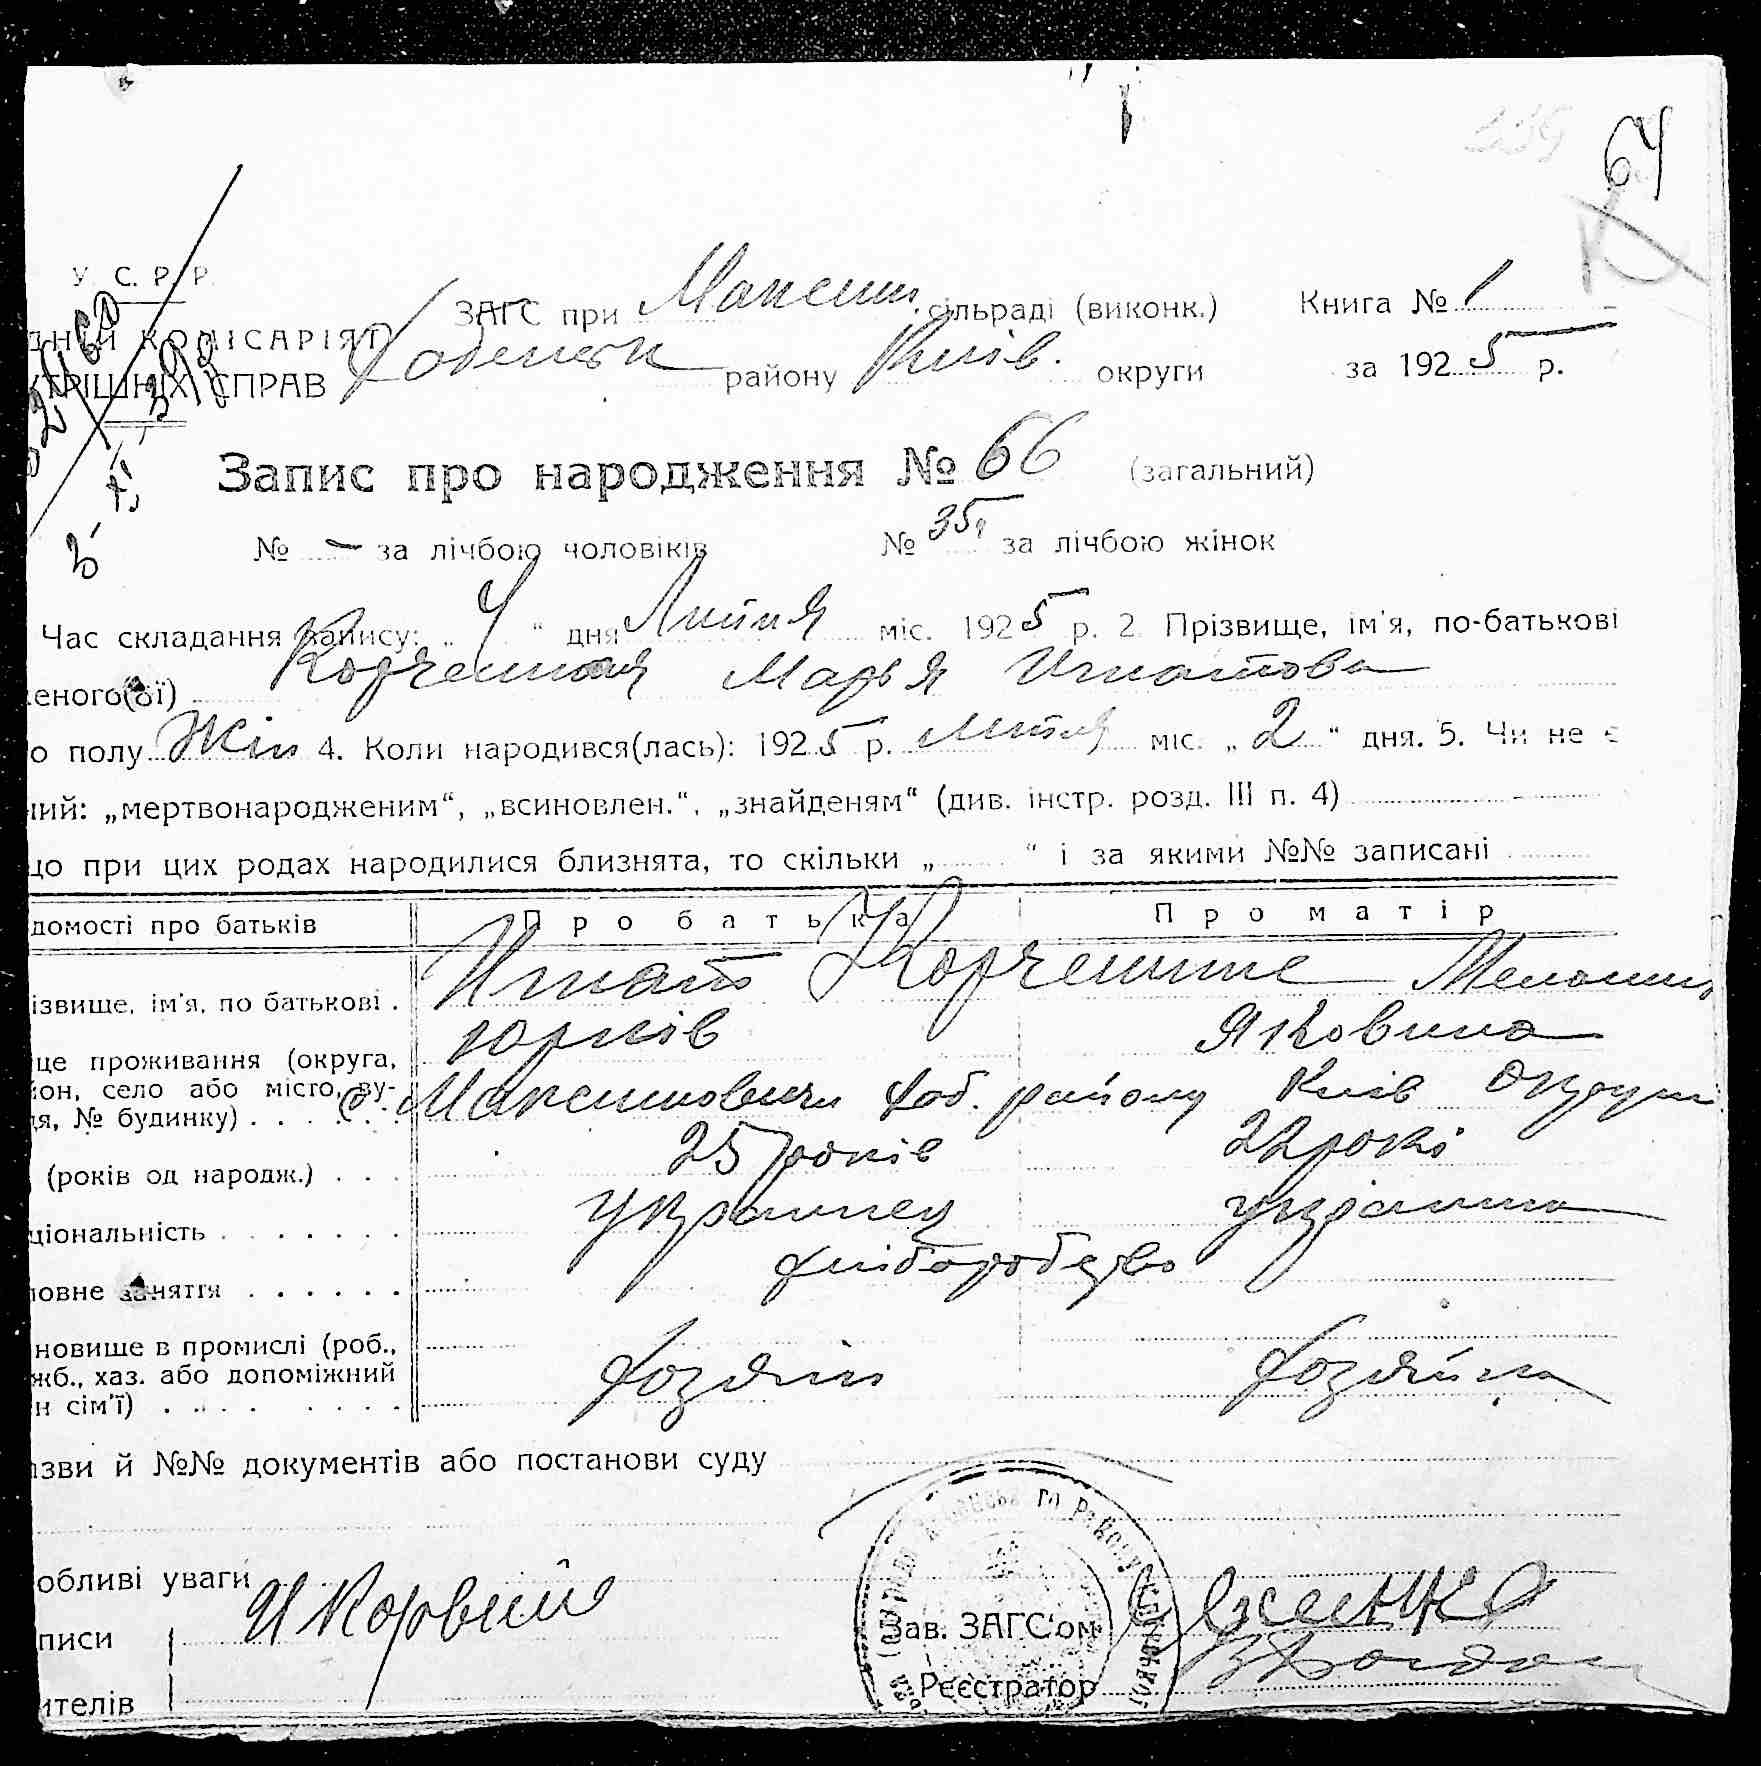 64
У. С. Р. Р.
ЗАГС при Максим. сільраді (виконк.) Книга № 1
ДНІЙ КОМІСАРІЯТ
УТРІШНІХ СПРАВ району Київ. округи за 1925 р.
Запис про народження № 66 (загальний)
№ — за лічбою чоловіків № 35 за лічбою жінок
Час складання запису: „4“ дня Липня міс. 1925 р. 2. Прізвище, ім'я, по-батькові
еного(ої) Марья Игнатова
о полу Жін 4. Коли народився(лась): 1925 р. Липня міс. „2“ дня. 5. Чи не є
ний: „мертвонародженим“, „всиновлен.“, „знайденям“ (див. інстр. розд. III п. 4)
що при цих родах народилися близнята, то скільки „ “ і за якими №№ записані
домості про батьків Про батька Про матір
ізвище, ім'я, по батькові . Игнат Корченине
Юрків Яковина
це проживання (округа,
он, село або місто, ву-
я, № будинку) . . . . с. Максимовичи Хоб. району Київ Округи
(років од народж.) . . . 25 років 22 рокі
ціональність . . . . . . . украинец украинка
ловне заняття . . . . . . хліборобство
новище в промислі (роб.,
жб., хаз. або допоміжний
н сім'ї) . . . . . . . . хозяин хозяйка
азви й №№ документів або постанови суду
обливі уваги
писи
Зав. ЗАГС'ом
Реєстратор
ителів